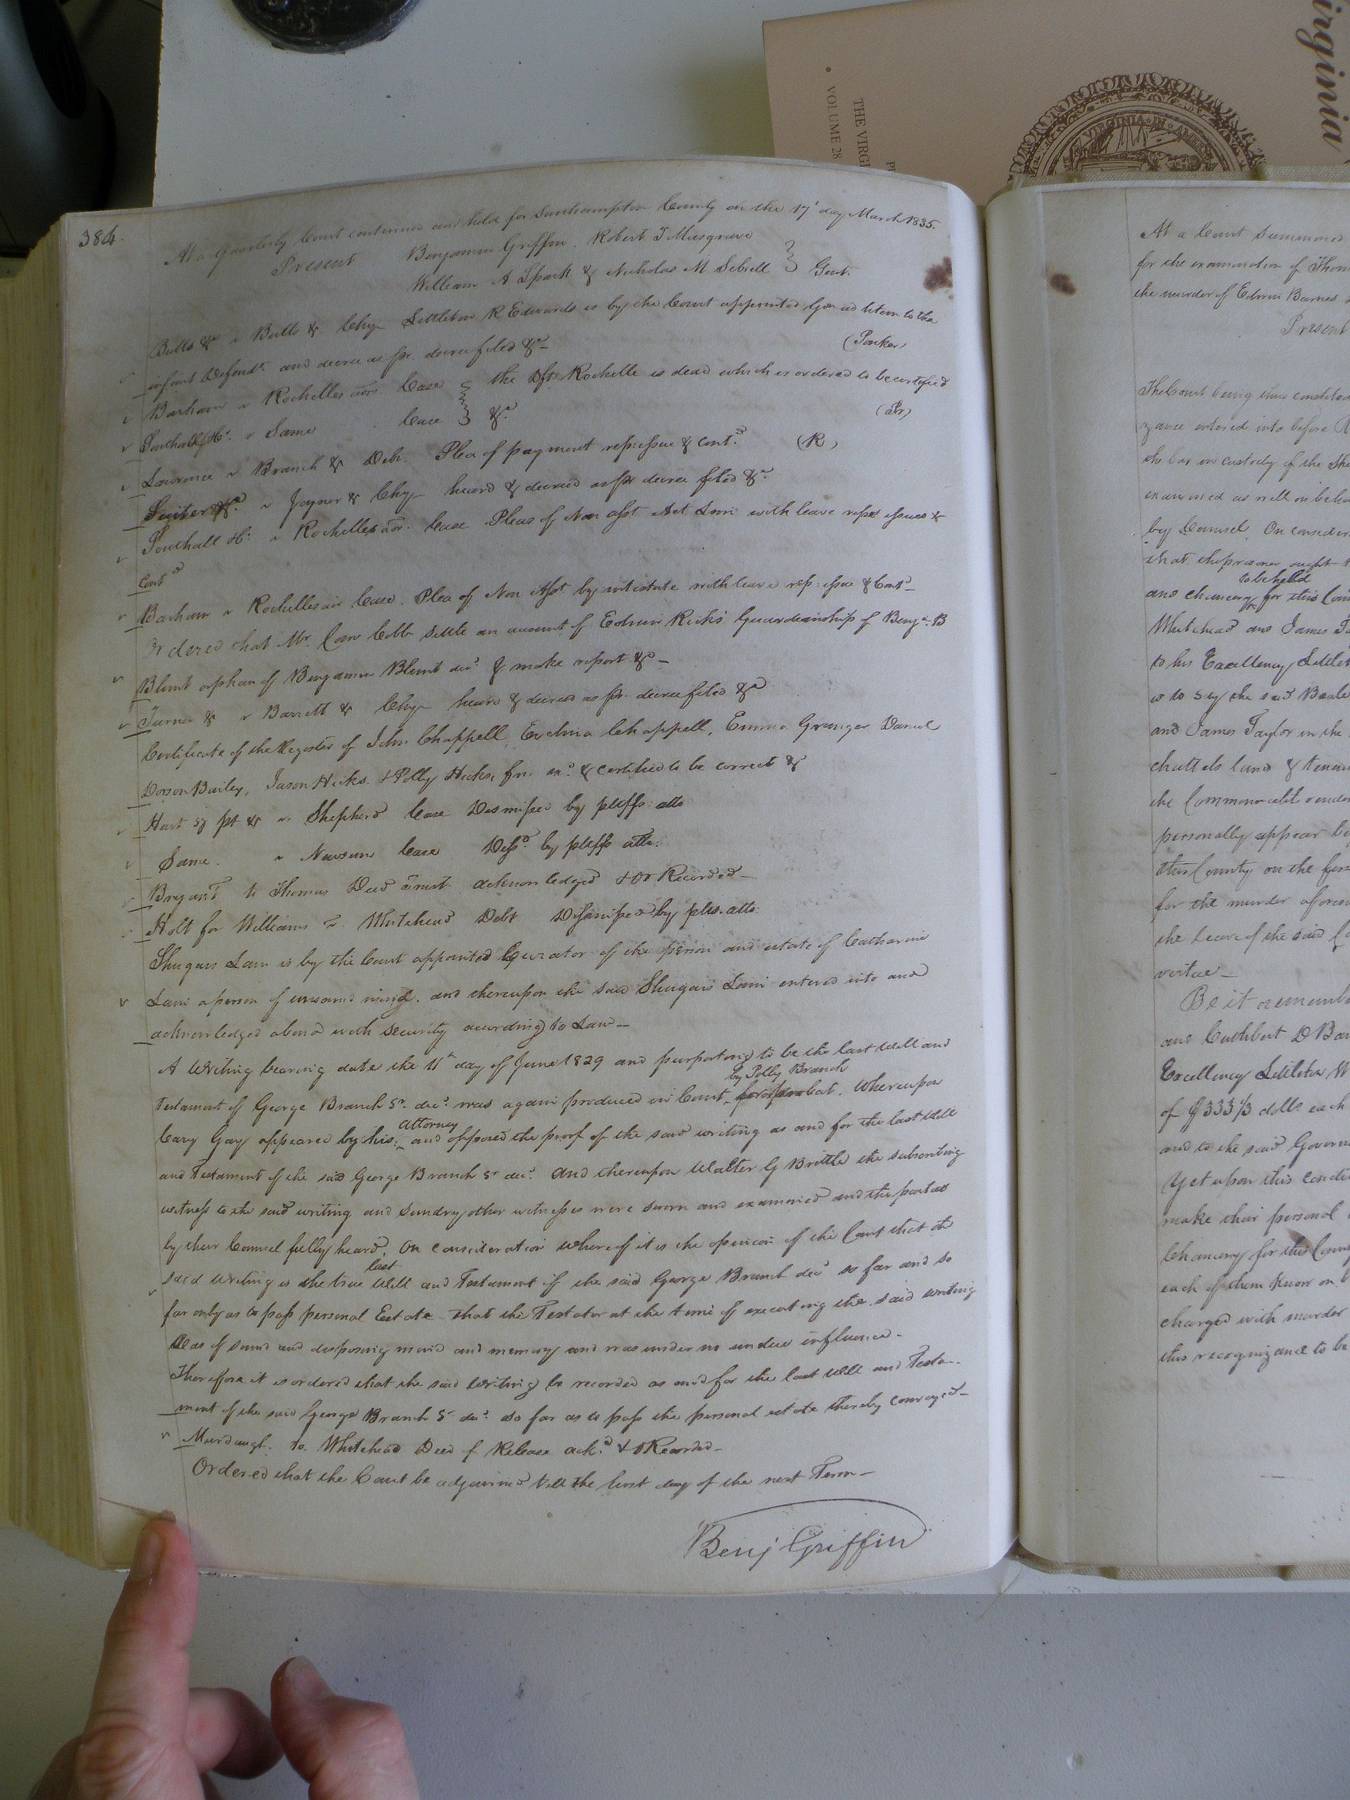 384.
At a Quarterly Court continued and held for Southampton County on the 17th day March 1835.
Present Benjamin Griffin, Robert T Musgrave
William A Spark & Nicholas M Sebrell } Gent.
Butts &c v Butts & Chy Littleton R Edwards is by the Court appointed Guard litem to the
infant Defendts. and decree as pr. decree filed &c— (Parker)
Barham v Rochelles admr. Case } the Dft Rochelle is dead which is ordered to be certified
Southall &c. v Same Case } &c. (Pr)
Lawrence v Branch & Debt. Plea of payment rep issue & contd. (R)
&c. v Joyner & Chy heard & decree as pr decree filed &c.
Southall &c. v Rochelles admr. Case Pleas of Non asst Act Limn with leave rep issues &
contd
Barham v Rochelles adm Case. Plea of Non Asst by intestate with leave rep issue & Contd—
Ordered that Mr. Carr Cobb settle an account of Edwin Ricks Guardianship of Benja. B
Blunt orphan of Benjamin Blunt decd. & make report &c—
Turner & v Barrett & Chy heard & decree as pr. decree filed &c
Certificate of the Register of John Chappell, Evelina Chappell, Emma Granger Daniel
Dorson Bailey, Jason Hicks & Polly Hicks, free &c. & certified to be correct &
Hart pt & v Shepherd Case Dismissed by pltffs atto
Same. v Newsum Case Dissd. by pltffs atto.
Bryant to Thomas Deed Trust acknowledged & Or Recorded—
Holt for Williams v. Whitehead Debt Dismissed by plts. atto.
Shugars Lain is by the Court appointed Curator of the person and estate of Catharine
Lain a person of unsound mind. and thereupon the said Shugars Lain entered into and
acknowledged a bond with security according to Law—
A Writing bearing date the 11th day of June 1829 and purporting to be the last Will and
by Polly Branch
Testament of George Branch Sr. decd. was again produced in Court for probat, Whereupon
attorney
Cary Gay appeared by his and opposed the proof of the said writing as and for the last Will
and Testament of the said George Branch Sr decd. And thereupon Walter G Brittle the subscribing
witness to the said writing and sundry other witnesses were sworn and examined and the parties
by their Counsel fully heard, On consideration whereof it is the opinion of the Court that the
last
said writing is the true Will and Testament of the said George Branch decd so far and so
far only as to pass personal Estate that the Testator at the time of executing the said writing
was of sound and disposing mind and memory and was under no undue influence.
Therefore it is ordered that the said Writing be recorded as and for the last Will and Testa-
ment of the said George Branch Sr decd. so far as to pass the personal estate thereby conveyed—
Murdaugh. to Whitehead Deed of Release ackd. & Or Recorded—
Ordered that the Court be adjourned till the first day of the next Term—
Benj Griffin
At a Court Summoned
for the examination of Thom
the murder of Edwin Barnes
Present
The Court being thus constituted
zance entered into before
the bar in custody of the She
examined as well on beha
by Counsel, On consider
that the prisoner ought
to be held
and chancery for this Coun
Whitehead and James Ta
to his Excellency Littlet
is to say the said Beale
and James Taylor in the
chattels land & tenem
the Commonwealth
personally appear be
this County on the firs
for the murder aforesa
the leave of the said Co
virtue—
Be it remembe
and Cuthbert D Bar
Excellency Littleton W
of $333 1/3 dolls each
and to the said Govern
Yet upon this condit
make their personal
Chancery for this County
each of them know on b
charged with murder
this recognizance to be
Virginia
THE VIRG
VOLUME 28
VIRGINIA